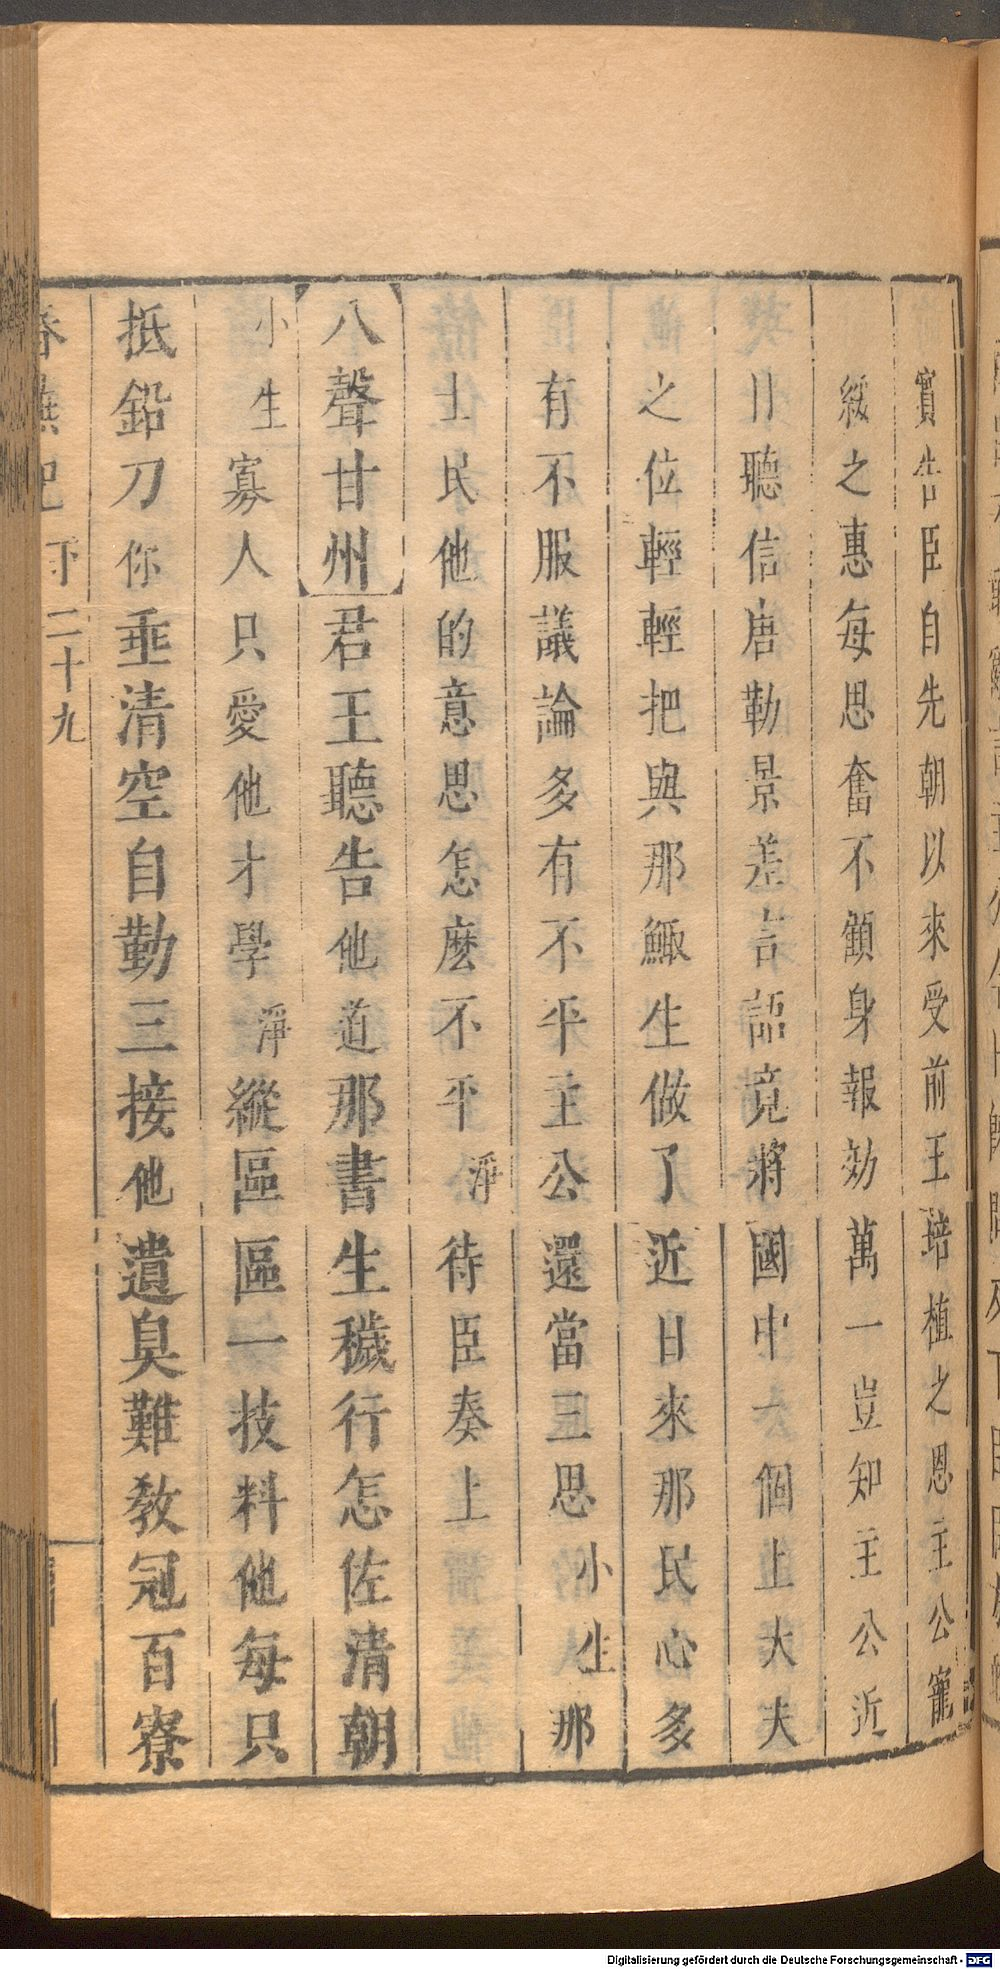 實告臣自先朝以來受前王培植之恩主公寵
綏之惠每思奮不顧身報効萬一豈知主公近
日聽信唐勒景差言語竟將國中一個上大夫
之位輕輕把與那鯫生做了近日來那民心多
有不服議論多有不平主公還當三思小生那
士民他的意思怎麼不平淨待臣奏上
八聲甘州君王聽告他道那書生穢行怎佐清朝
小生寡人只愛他才學淨縱區區一技料他每只
抵鉛刀你垂清空自勤三接他遺臭難教冠百寮
春蕪記下二十九
Digitalisierung gefördert durch die Deutsche Forschungsgemeinschaft - DFG